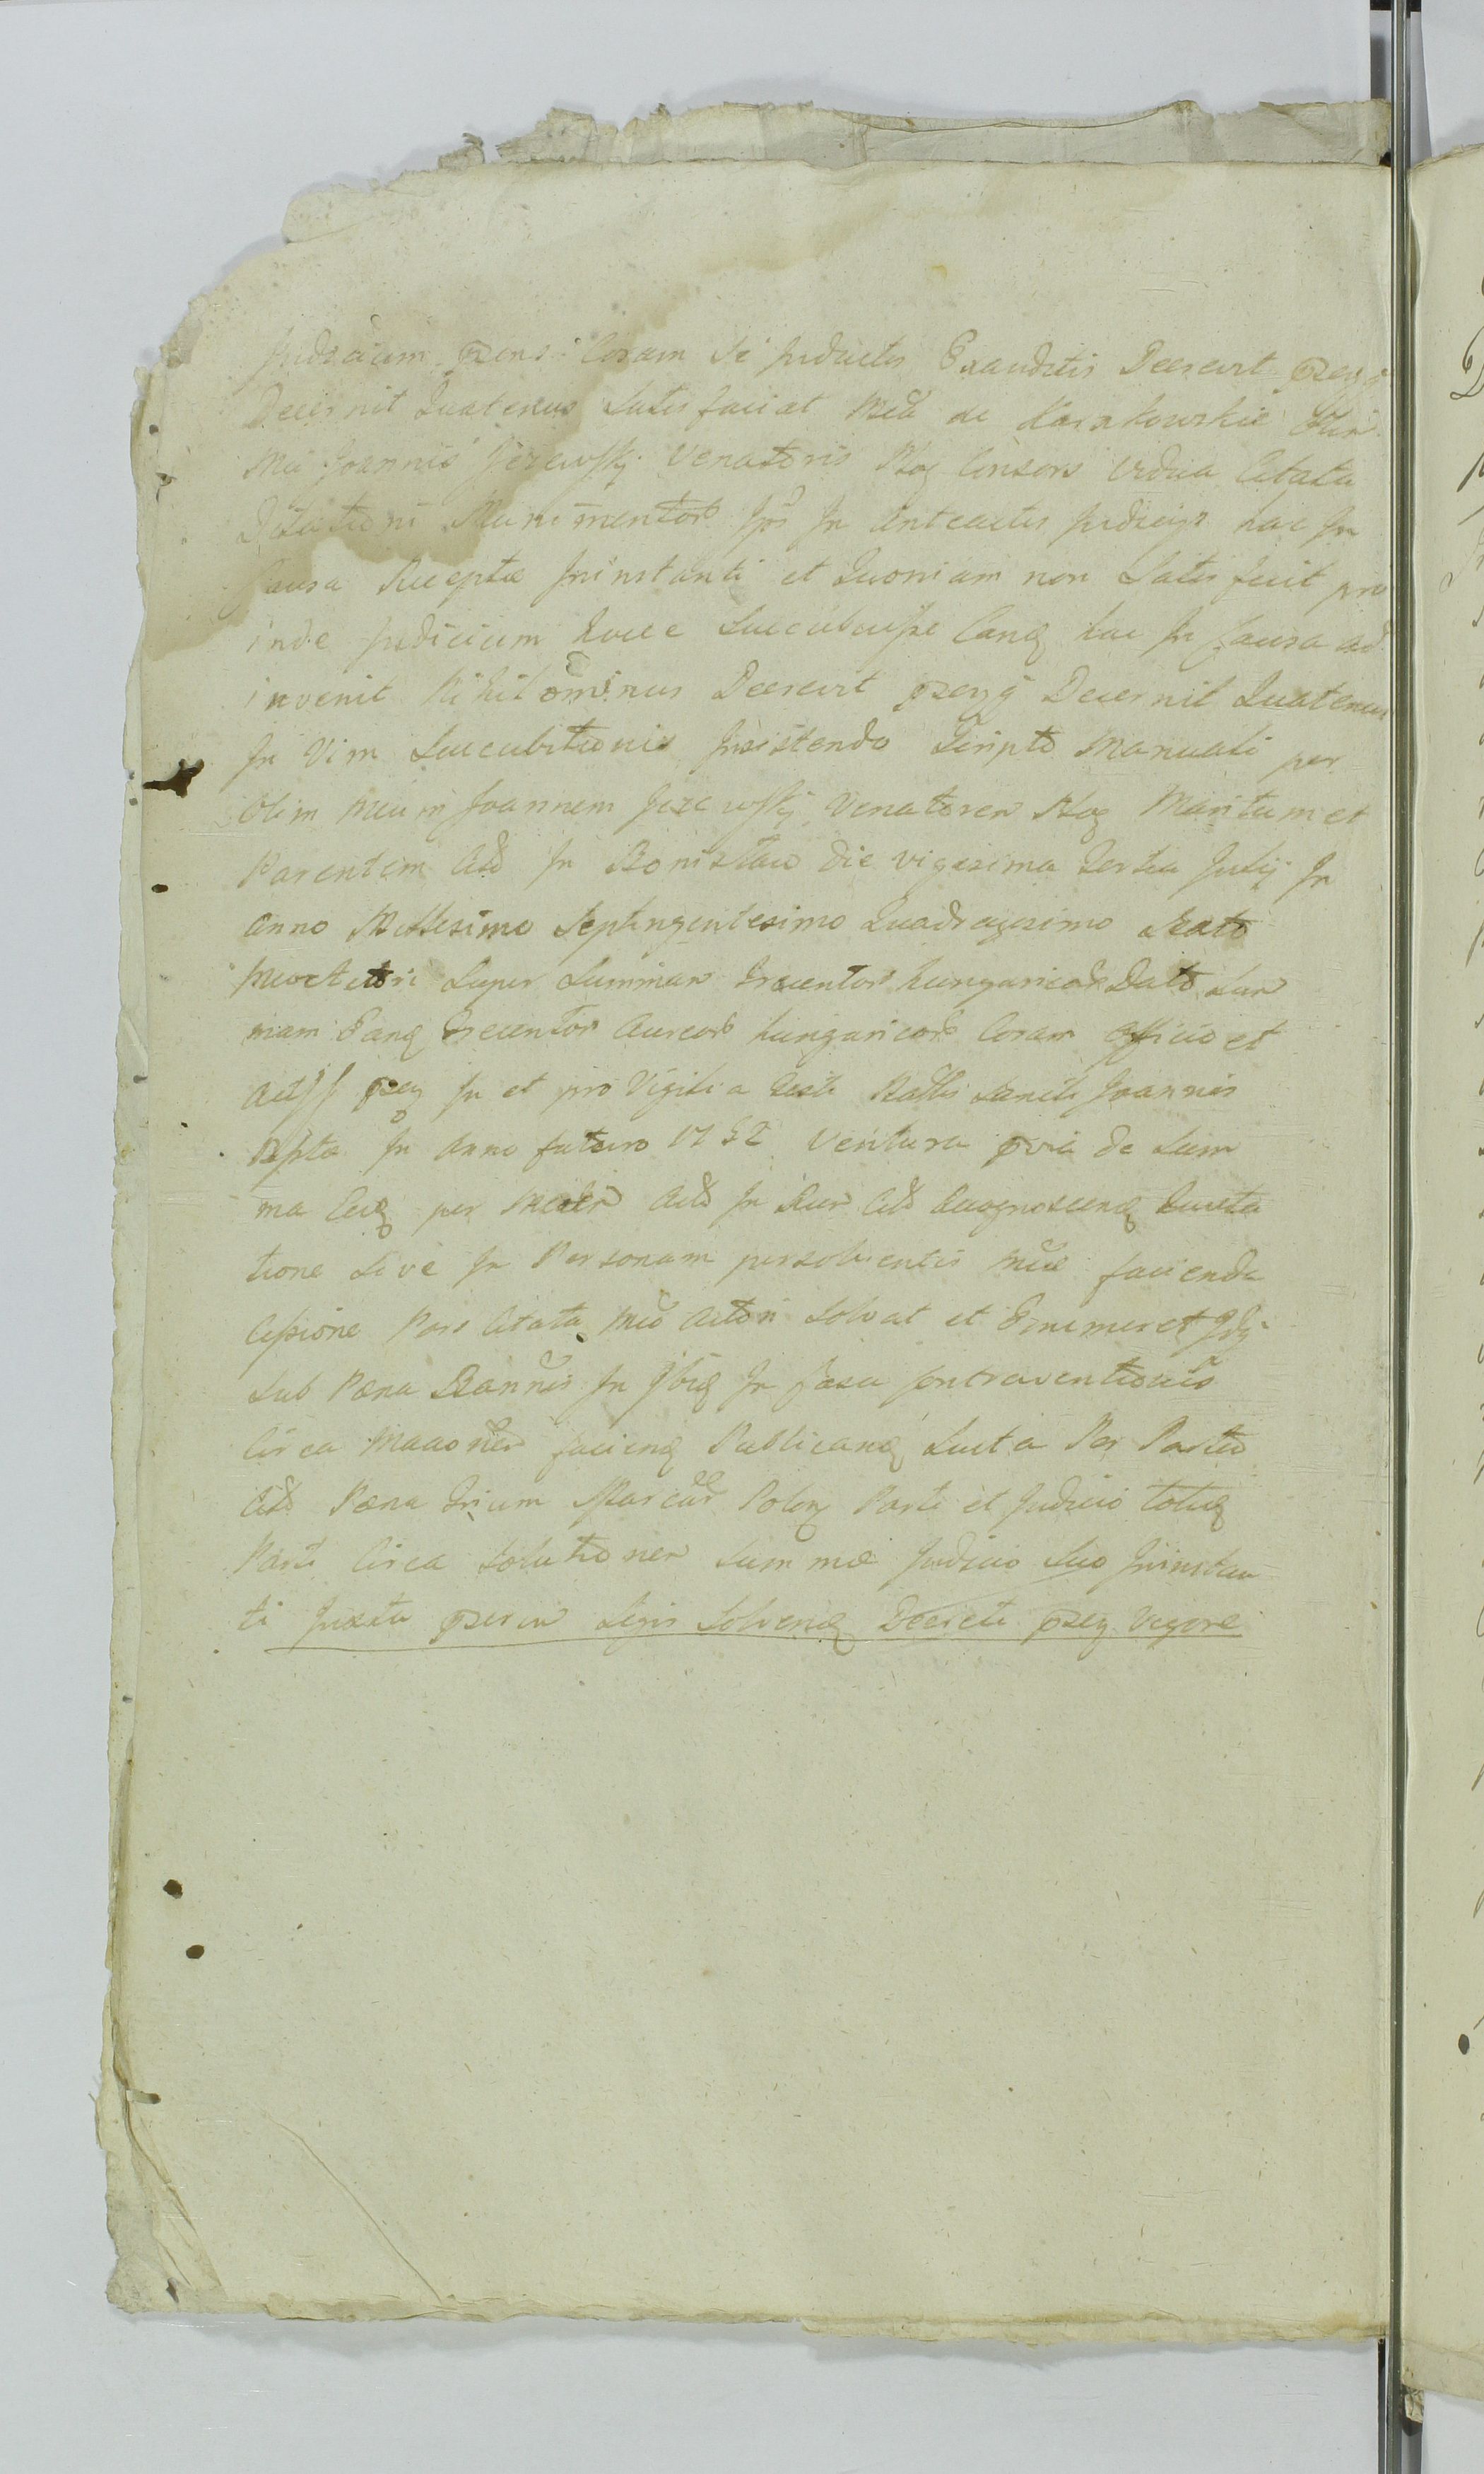 Judicium pens: Coram Se Juductis Exauditis Decrevit pszq
Decernit Quatenus Satisfaciat Mcd de Karskowskie Olim
Mci Joannis Jezewskj Venatoris Rog Consors Vidua Citata
Dilationi Munimentor Ips In Anteactis Judicijs hac In
Causa Receptæ Ininstanti et Quoniam non Satis fecit pro
inde Judicium hocce Succubuisse Eanq hac In Causa ad
invenit Nihilominus Decrevit pszq Decernit Quatenus
In Vim Succubitionis Insistendo Scripto Manuali per
Olim Mcum Joannem Jezewskj Venatorem Rog Maritum et
Parentem Citd In Bonislaw die vigesima Tertia Julij In
Anno Millesimo Septingentesimo Quadragesimo Nato
Mco Actori Super Summam Trecentor hungaricor Dato Sum
mam Eanq Trecentor Aureor hungaricor Coram Officio et
Actis psz In et pro Vigilia Festi Natlis Sancti Joannis
Bapta In Anno futuro 1752 Ventura pvia de Sum
ma Eaq per Actor Citd In Rur Citd Recognoscenq Quieta
tione Sive In Personam persolventis Mcæ facienda
Cessione Pars Citata Mco Actori Solvat et Enumeret Idq
Sub Pæna Bannis In Ibiq In Casu Contraventionis
Circa Maaoner faciend Publicanq Lucta Per Partes
Citd Pæna Trium Marcar Polon Parti et Judicio totiq
Parti Circa Solutionem Summæ Judicio Suo Ininstan
ti Juxta pscr Legis Solvenq Decreti psz Vigore